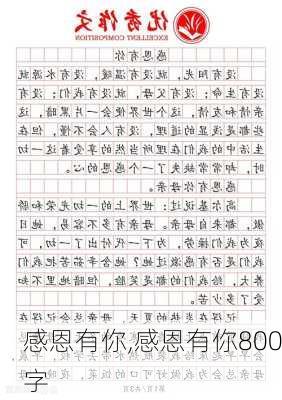 优秀作文
EXCELLENT COMPOSITION
感恩有你
没有阳光，就没有温暖，没有水源就
没有生命；没有父母，就没有我们；没有
亲情和友情，这个世界便会一片黑暗，这
些都是浅显的道理，没有人会不懂，但在
生活中的我们在理所当然的享受着这一切
时，却常常缺失了一个感恩的心。
感恩有你母亲。
高尔基说过：世界上的一切光荣和骄
傲，都来自母亲。母亲有多不容易，她日
夜为我们操劳，为下一代付出了一切，可
我们有是否感激过她？她含辛茹苦把我们
养大，给我们的都是笑脸，但暗地里不知
受了多少苦。
感恩有你,感恩有你800
字
第1页 / 共3页